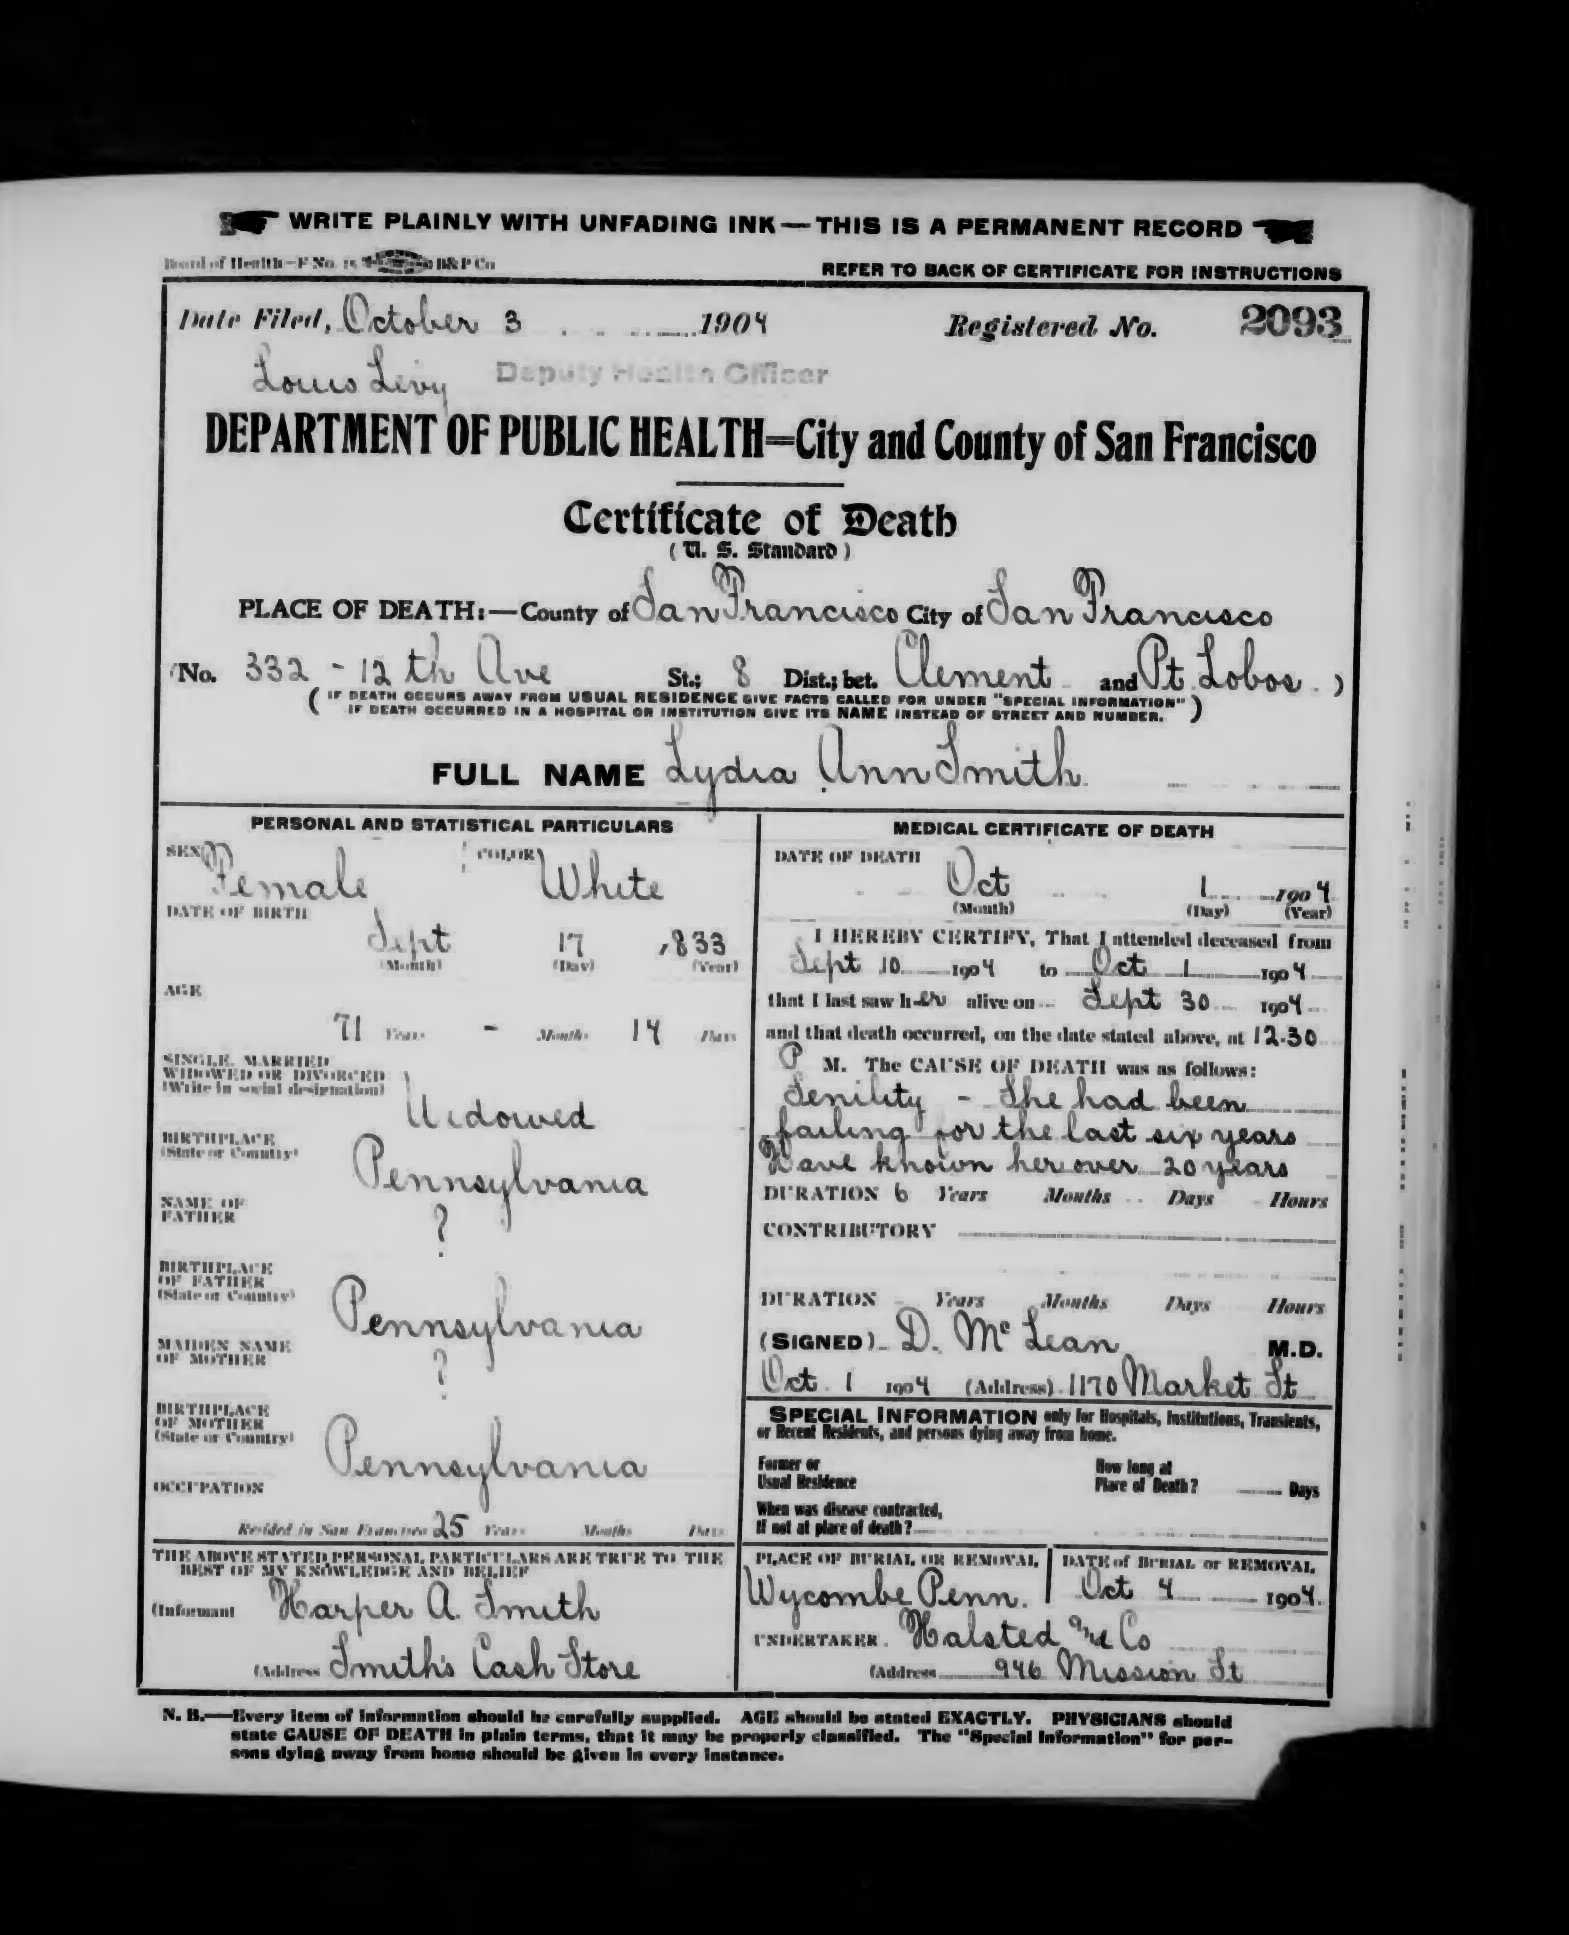 WRITE PLAINLY WITH UNFADING INK—THIS IS A PERMANENT RECORD
Board of Health—F No. 15 B&P Co
REFER TO BACK OF CERTIFICATE FOR INSTRUCTIONS
Date Filed, October 3 1904 Registered No. 2093
Louis Levy Deputy Health Officer
DEPARTMENT OF PUBLIC HEALTH=City and County of San Francisco
Certificate of Death
(U. S. Standard)
PLACE OF DEATH:—County of San Francisco City of San Francisco
(No. 332 - 12th Ave St.; 8 Dist.; bet. Clement and Pt. Lobos )
( IF DEATH OCCURS AWAY FROM USUAL RESIDENCE GIVE FACTS CALLED FOR UNDER "SPECIAL INFORMATION"
IF DEATH OCCURRED IN A HOSPITAL OR INSTITUTION GIVE ITS NAME INSTEAD OF STREET AND NUMBER. )
FULL NAME Lydia Ann Smith
PERSONAL AND STATISTICAL PARTICULARS
SEX Female COLOR White
DATE OF BIRTH
Sept 17 1833
(Month) (Day) (Year)
AGE
71 Years - Months 14 Days
SINGLE, MARRIED
WIDOWED OR DIVORCED
(Write in social designation)
Widowed
BIRTHPLACE
(State or Country)
Pennsylvania
NAME OF
FATHER
?
BIRTHPLACE
OF FATHER
(State or Country)
Pennsylvania
MAIDEN NAME
OF MOTHER
?
BIRTHPLACE
OF MOTHER
(State or Country)
Pennsylvania
OCCUPATION
Resided in San Francisco 25 Years Months Days
THE ABOVE STATED PERSONAL PARTICULARS ARE TRUE TO THE
BEST OF MY KNOWLEDGE AND BELIEF
(Informant Harper A. Smith
(Address Smith's Cash Store
MEDICAL CERTIFICATE OF DEATH
DATE OF DEATH
Oct 1 1904
(Month) (Day) (Year)
I HEREBY CERTIFY, That I attended deceased from
Sept 10 1904 to Oct 1 1904
that I last saw her alive on Sept 30 1904
and that death occurred, on the date stated above, at 12.30
P M. The CAUSE OF DEATH was as follows:
Senility - She had been
failing for the last six years
Have known her over 20 years
DURATION 6 Years Months Days Hours
CONTRIBUTORY
DURATION Years Months Days Hours
(SIGNED) D. McLean M.D.
Oct. 1 1904 (Address) 1170 Market St
SPECIAL INFORMATION only for Hospitals, Institutions, Transients,
or Recent Residents, and persons dying away from home.
Former or
Usual Residence
How long at
Place of Death? Days
When was disease contracted,
If not at place of death?
PLACE OF BURIAL OR REMOVAL
Wycombe Penn.
DATE of BURIAL or REMOVAL
Oct 4 1904.
UNDERTAKER Halsted and Co
(Address 946 Mission St
N. B.—Every item of information should be carefully supplied. AGE should be stated EXACTLY. PHYSICIANS should
state CAUSE OF DEATH in plain terms, that it may be properly classified. The "Special Information" for per-
sons dying away from home should be given in every instance.